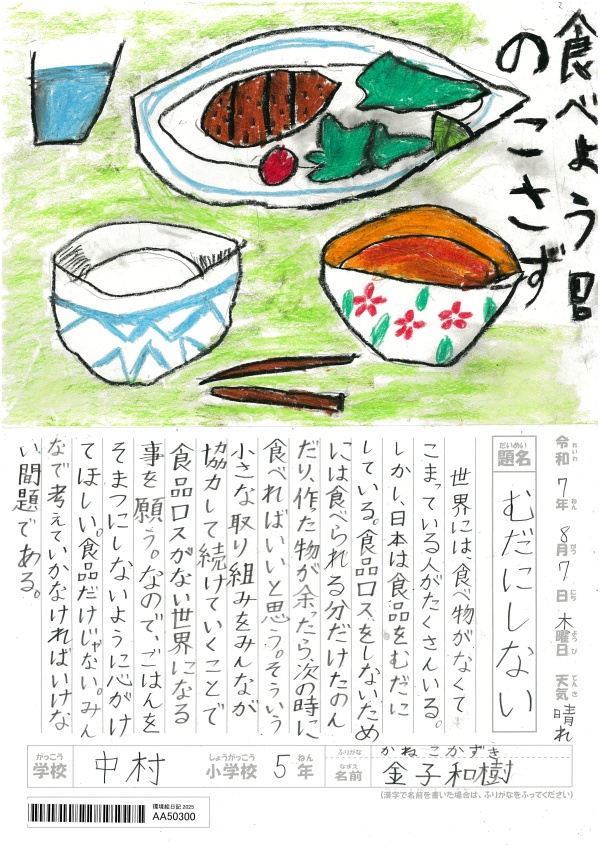 食べよう日
のこさず
令和7年8月7日木曜日天気晴れ
れいわ ねん がつ にち ようび てんき
だいめい
題名
むだにしない
世界には、食べ物がなくて
こまっている人がたくさんいる。
しかし、日本は食品をむだに
している。食品ロスをしないため
には食べられる分だけたのん
だり、作った物が余ったら次の時に
食べればいいと思う。そういう
小さな取り組みをみんなが
協力して続けていくことで
食品ロスがない世界になる
事を願う。なので、ごはんを
そまつにしないように心がけ
てほしい。食品だけじゃない。みん
なで考えていかなければいけな
い問題である。
がっこう しょうがっこう ねん
学校 中村 小学校 5年
ふりがな かねこかずき
なまえ
名前 金子和樹
(漢字で名前を書いた場合は、ふりがなをふってください)
環境絵日記 2025
AA50300